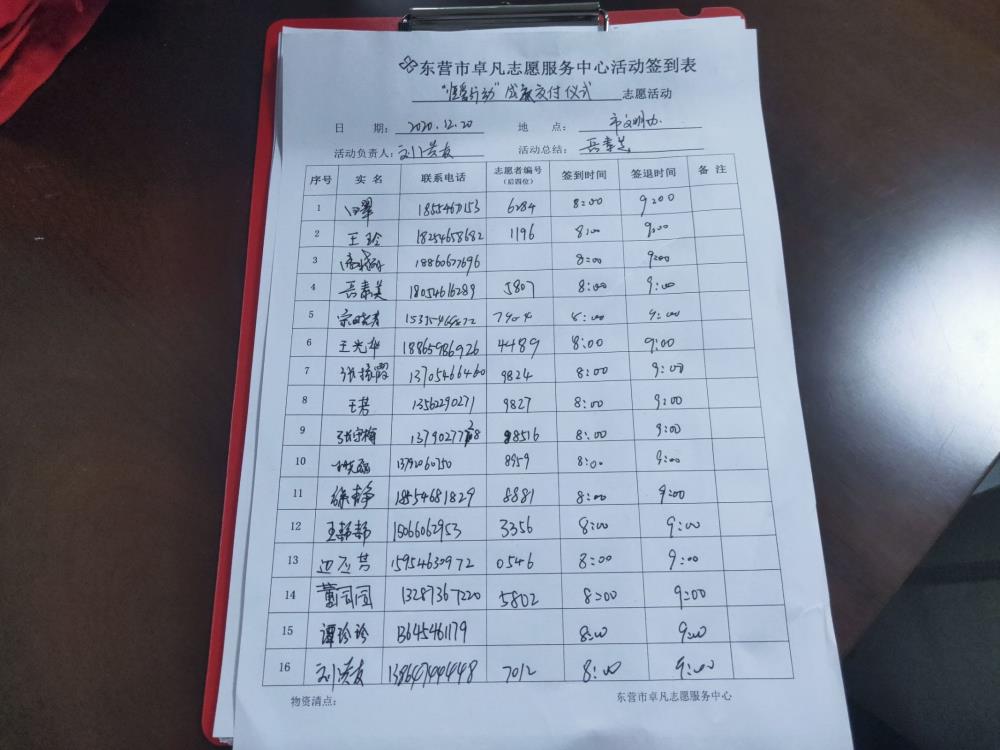 东营市卓凡志愿服务中心活动签到表
成果交付仪式 志愿活动
日 期: 2020.12.20 地 点: 市文明办
活动负责人: 刘洪友 活动总结: 岳素芝
序号 实名 联系电话 志愿者编号(后四位) 签到时间 签退时间 备注
1 6284 8:00 9:00
2 王玲 18254658682 1196 8:00 9:00
3 18860677696 8:00 9:00
4 岳素美 18054616289 5807 8:00 9:00
5 8:00 9:00
6 王光华 18865986926 4489 8:00 9:00
7 13705466460 9824 8:00 9:00
8 王芳 13562290271 9827 8:00 9:00
9 张守梅 8516 8:00 9:00
10 13792060750 8959 8:00 9:00
11 徐静 18554681829 8881 8:00 9:00
12 王韩韩 15066062953 3356 8:00 9:00
13 15954630972 0546 8:00 9:00
14 董同同 13287367220 5802 8:00 9:00
15 谭玲玲 13645461179 8:00 9:00
16 刘洪友 7012 8:00 9:00
物资清点: 东营市卓凡志愿服务中心